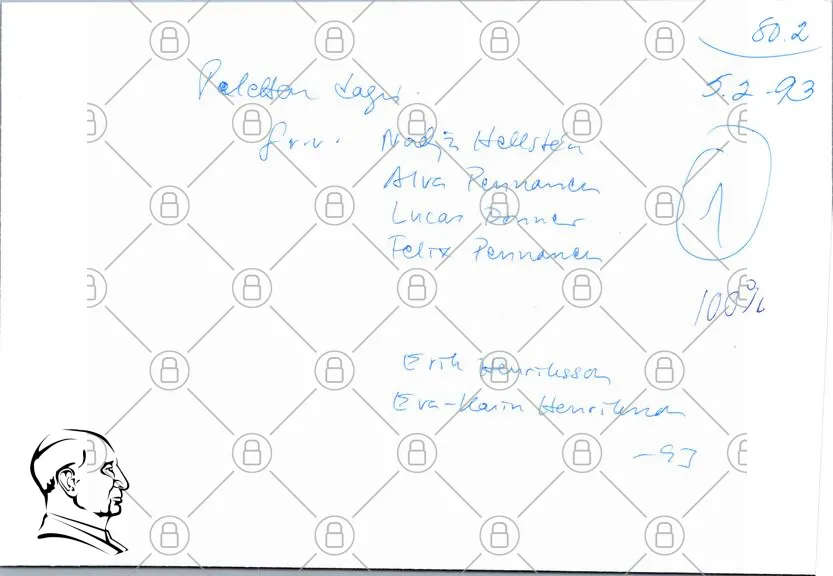 80.2
5.2-93
fr.v. Nadja Hellstén
Alva Pennanen
Lucas Donner
1
Felix Pennanen
100%
Erik Henriksson
Eva-Karin Henriksson
-93